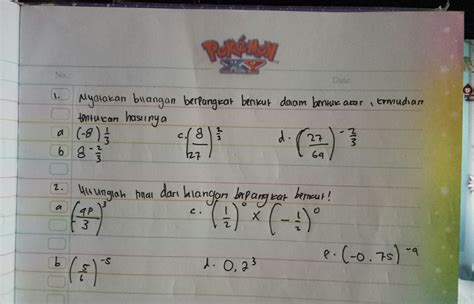 POKÉMON
XY
No.
Date
1. Nyatakan bilangan berpangkat berikut dalam bentuk akar, kemudian
tentukan hasilnya
a (-8)^(1/3) c. (8/27)^(2/3) d. (27/64)^(-2/3)
b 8^(-2/3)
2. Hitunglah hasil dari bilangan berpangkat berikut!
a (4p/3)^3 c. (1/2)^0 × (-1/2)^0
b (5/6)^-5 d. 0,2^3 e. (-0.75)^-4